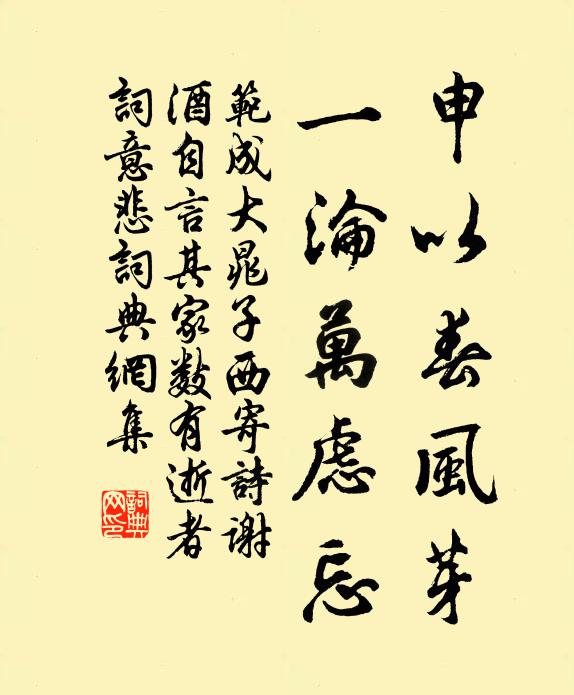 申以春風芽
一淪萬慮忘
範成大晁子西寄詩謝
酒自言其家數有逝者
詞意悲詞典網集
詞典
网印